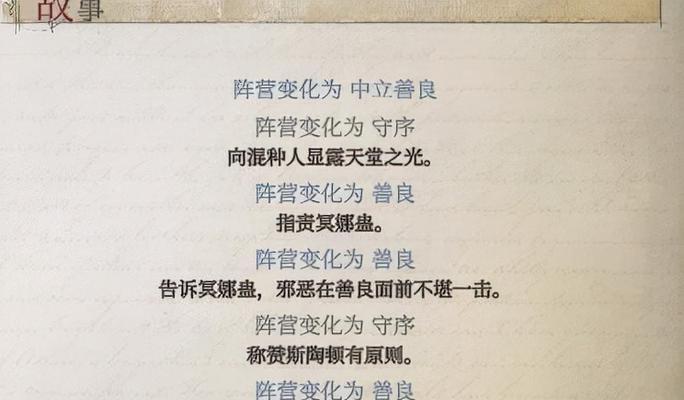 故事
阵营变化为 中立善良
阵营变化为 守序
向混种人显露天堂之光。
阵营变化为 善良
指责冥娜蛊。
阵营变化为 善良
告诉冥娜蛊，邪恶在善良面前不堪一击。
阵营变化为 守序
称赞斯陶顿有原则。
阵营变化为 善良